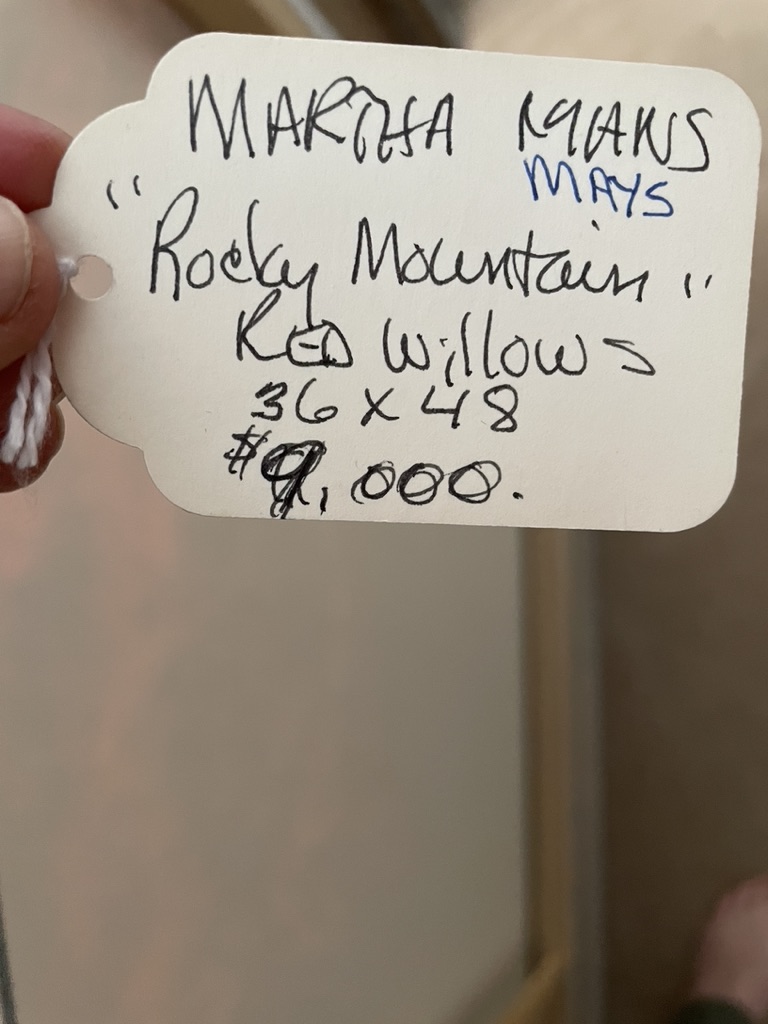 MARTHA MANS
MAYS
"Rocky Mountain"
RED Willows
36 x 48
$9,000.